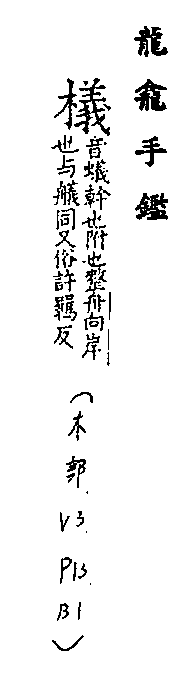 龍龕手鑑
檥音蟻幹也附也整舟向岸
也与艤同又俗許羈反
(木部 V3 P13 B1)